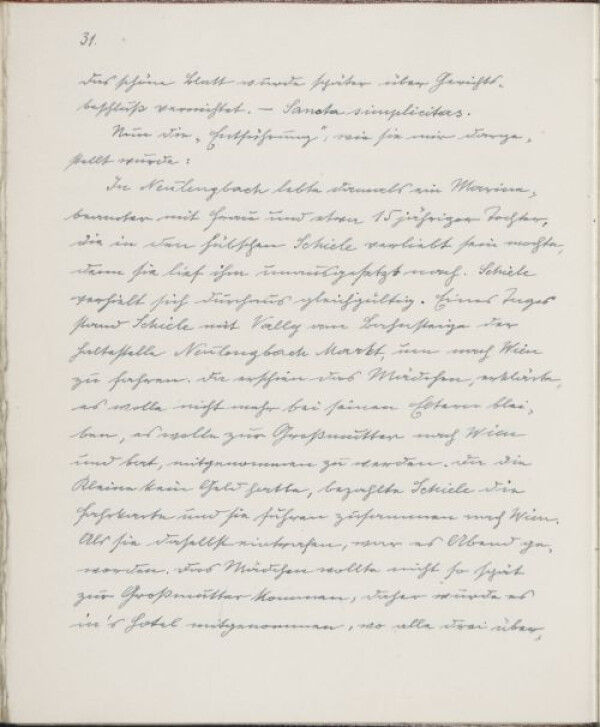 31.
das schöne Blatt wurde später über Gerichts-
beschluß vernichtet. – Sancta simplicitas.
Nun die „Entführung", wie sie mir darge-
stellt wurde:
In Neulengbach lebte damals ein Marine-
beamter mit Frau und etwa 15 jähriger Tochter,
die in den hübschen Schiele verliebt sein mochte,
denn sie lief ihm unausgesetzt nach. Schiele
verhielt sich durchaus gleichgültig. Eines Tages
stand Schiele mit Vally am Bahnsteige der
Haltestelle Neulengbach Markt, um nach Wien
zu fahren. Da erschien das Mädchen, erklärte,
es wolle nicht mehr bei seinen Eltern blei-
ben, es wolle zur Großmutter nach Wien
und bat, mitgenommen zu werden. Da die
Kleine kein Geld hatte, bezahlte Schiele die
Fahrkarte und sie fuhren zusammen nach Wien.
Als sie daselbst eintrafen, war es Abend ge-
worden. Das Mädchen wollte nicht so spät
zur Großmutter kommen, daher wurde es
in's Hotel mitgenommen, wo alle drei über-